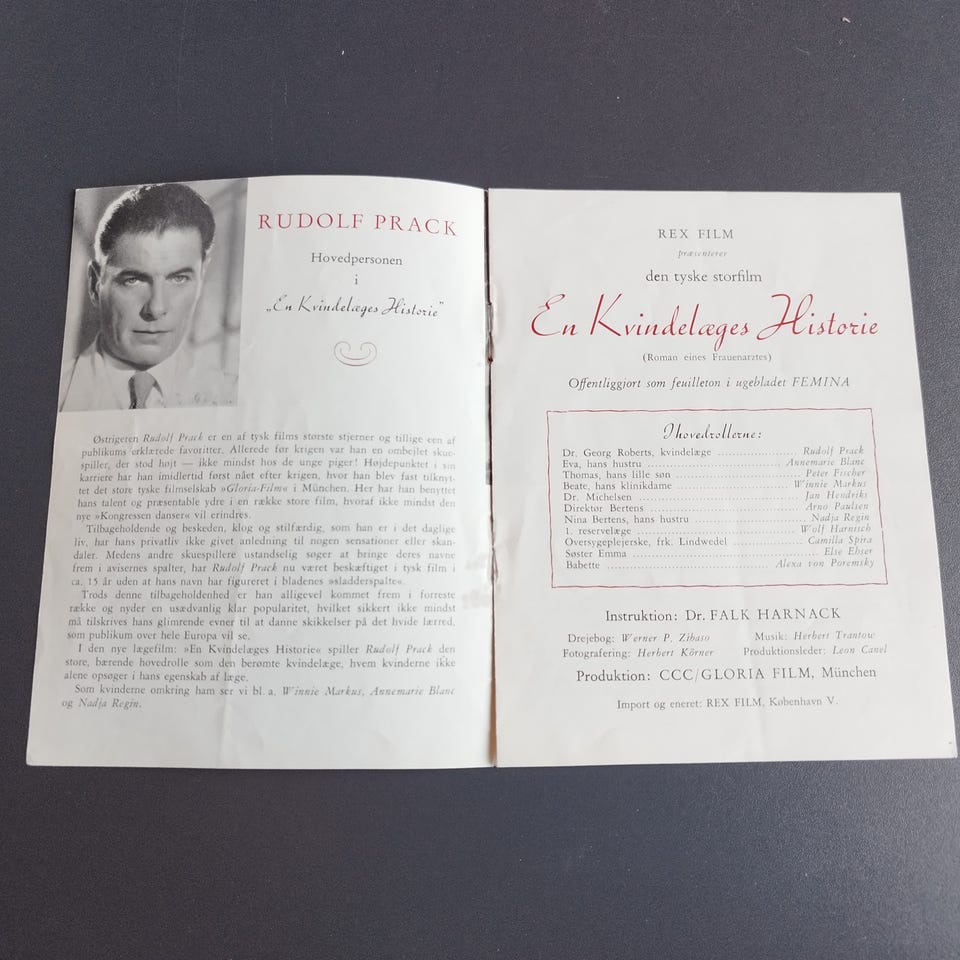 RUDOLF PRACK
Hovedpersonen
i
„En Kvindelæges Historie”
Østrigeren Rudolf Prack er en af tysk films største stjerner og tillige een af
publikums erklærede favoritter. Allerede før krigen var han en ombejlet skue-
spiller, der stod højt — ikke mindst hos de unge piger! Højdepunktet i sin
karriere har han imidlertid først nået efter krigen, hvor han blev fast tilknyt-
tet det store tyske filmselskab »Gloria-Film« i München. Her har han benyttet
hans talent og præsentable ydre i en række store film, hvoraf ikke mindst den
nye »Kongressen danser« vil erindres.
Tilbageholdende og beskeden, klog og stilfærdig, som han er i det daglige
liv, har hans privatliv ikke givet anledning til nogen sensationer eller skan-
daler. Medens andre skuespillere ustandselig søger at bringe deres navne
frem i avisernes spalter, har Rudolf Prack nu været beskæftiget i tysk film i
ca. 15 år uden at hans navn har figureret i bladenes »sladderspalte«.
Trods denne tilbageholdenhed er han alligevel kommet frem i forreste
række og nyder en usædvanlig klar popularitet, hvilket sikkert ikke mindst
må tilskrives hans glimrende evner til at danne skikkelser på det hvide lærred,
som publikum over hele Europa vil se.
I den nye lægefilm: »En Kvindelæges Historie« spiller Rudolf Prack den
store, bærende hovedrolle som den berømte kvindelæge, hvem kvinderne ikke
alene opsøger i hans egenskab af læge.
Som kvinderne omkring ham ser vi bl. a. Winnie Markus, Annemarie Blanc
og Nadja Regin.
REX FILM
præsenterer
den tyske storfilm
En Kvindelæges Historie
(Roman eines Frauenarztes)
Offentliggjort som feuilleton i ugebladet FEMINA
I hovedrollerne:
Dr. Georg Roberts, kvindelæge Rudolf Prack
Eva, hans hustru Annemarie Blanc
Thomas, hans lille søn Peter Fischer
Beate, hans klinikdame Winnie Markus
Dr. Michelsen Jan Hendriks
Direktør Bertens Arno Paulsen
Nina Bertens, hans hustru Nadja Regin
1. reservelæge Wolf Harnisch
Oversygeplejerske, frk. Lindwedel Camilla Spira
Søster Emma Else Ehser
Babette Alexa von Poremsky
Instruktion: Dr. FALK HARNACK
Drejebog: Werner P. Zibaso Musik: Herbert Trantow
Fotografering: Herbert Körner Produktionsleder: Leon Canel
Produktion: CCC/GLORIA FILM, München
Import og eneret: REX FILM, København V.